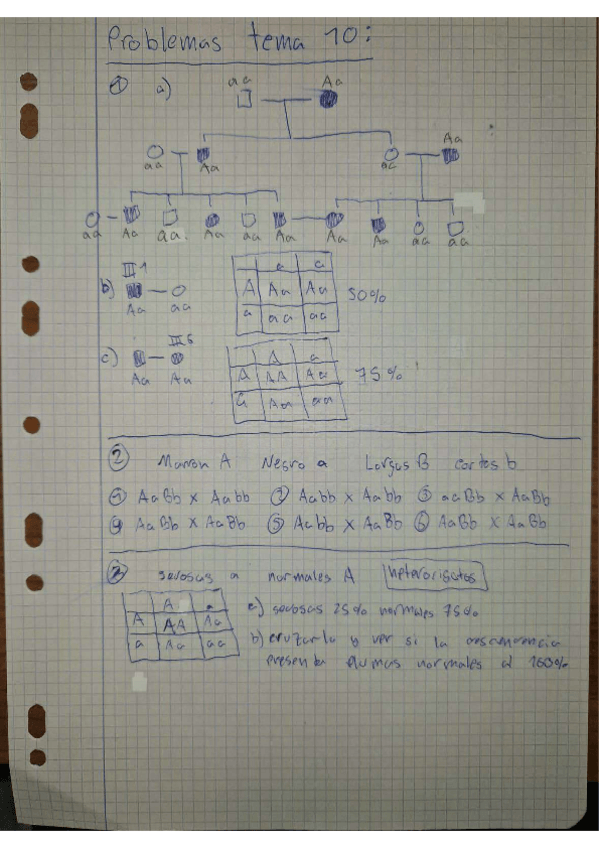 Problemas tema 10:
① a) aa Aa
aa Aa aa Aa
aa Aa aa Aa aa Aa Aa Aa aa aa
III1
b) Aa aa
a a
A Aa Aa
a aa aa
50%
III5
c) Aa Aa
A a
A AA Aa
a Aa aa
75%
② Marron A Negro a Largas B cortas b
① AaBb x Aabb ② Aabb x Aabb ③ aaBb x AaBb
④ AaBb x AaBb ⑤ Aabb x AaBb ⑥ AaBb x AaBb
③ sedosas a normales A heterorigotos
A a
A AA Aa
a Aa aa
a) sedosas 25% normales 75%
b) cruzarla y ver si la descendencia
presenta plumas normales al 100%